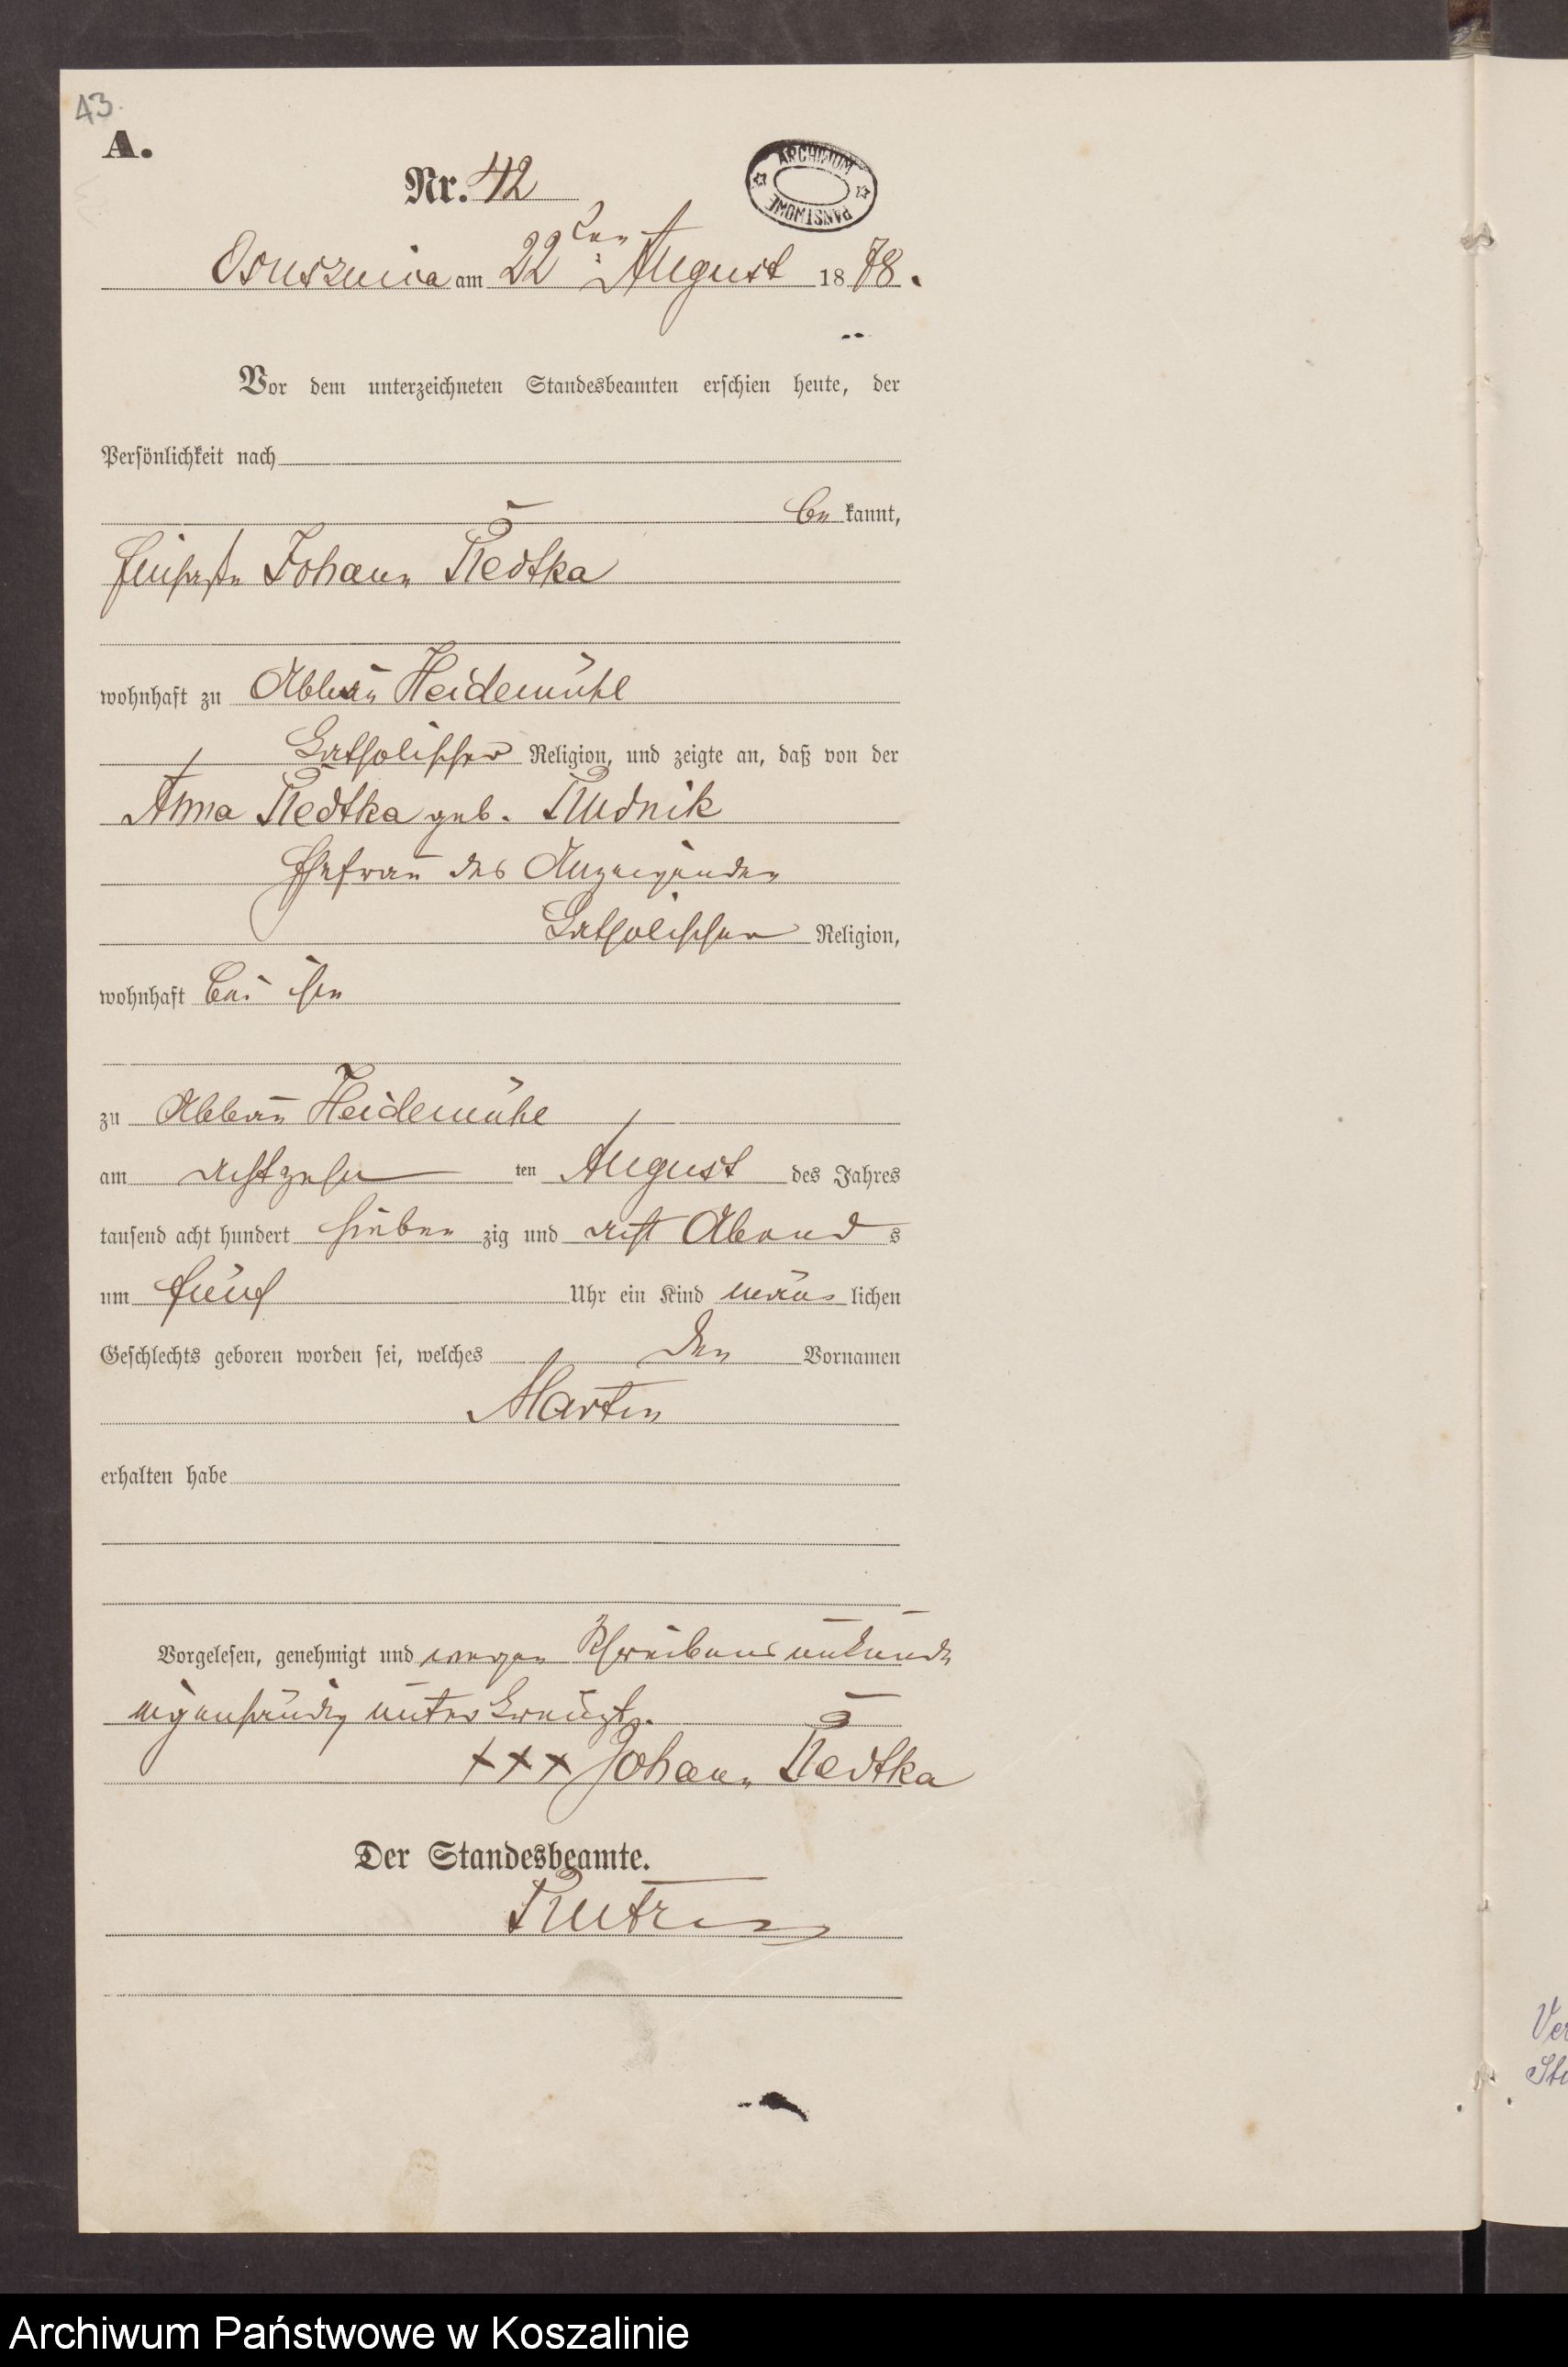 43.
A.
Nr. 42
ARCHIWUM PAŃSTWOWE
Osusznica am 22ten August 1878.
Vor dem unterzeichneten Standesbeamten erschien heute, der
Persönlichkeit nach
bekannt,
Johann Redtka
wohnhaft zu Abbau Heidemühl
katholischer Religion, und zeigte an, daß von der
Anna Redtka geb. Rudnik
Ehefrau des Anzeigenden
katholischer Religion,
wohnhaft bei ihm
zu Abbau Heidemühl
am achtzehnten August des Jahres
tausend acht hundert siebenzig und acht Abends
um fünf Uhr ein Kind männlichen
Geschlechts geboren worden sei, welches den Vornamen
Martin
erhalten habe
Vorgelesen, genehmigt und wegen Schreibensunkunde
eigenhändig unterkreuzt.
+++ Johann Redtka
Der Standesbeamte.
Ver
Sta
Archiwum Państwowe w Koszalinie